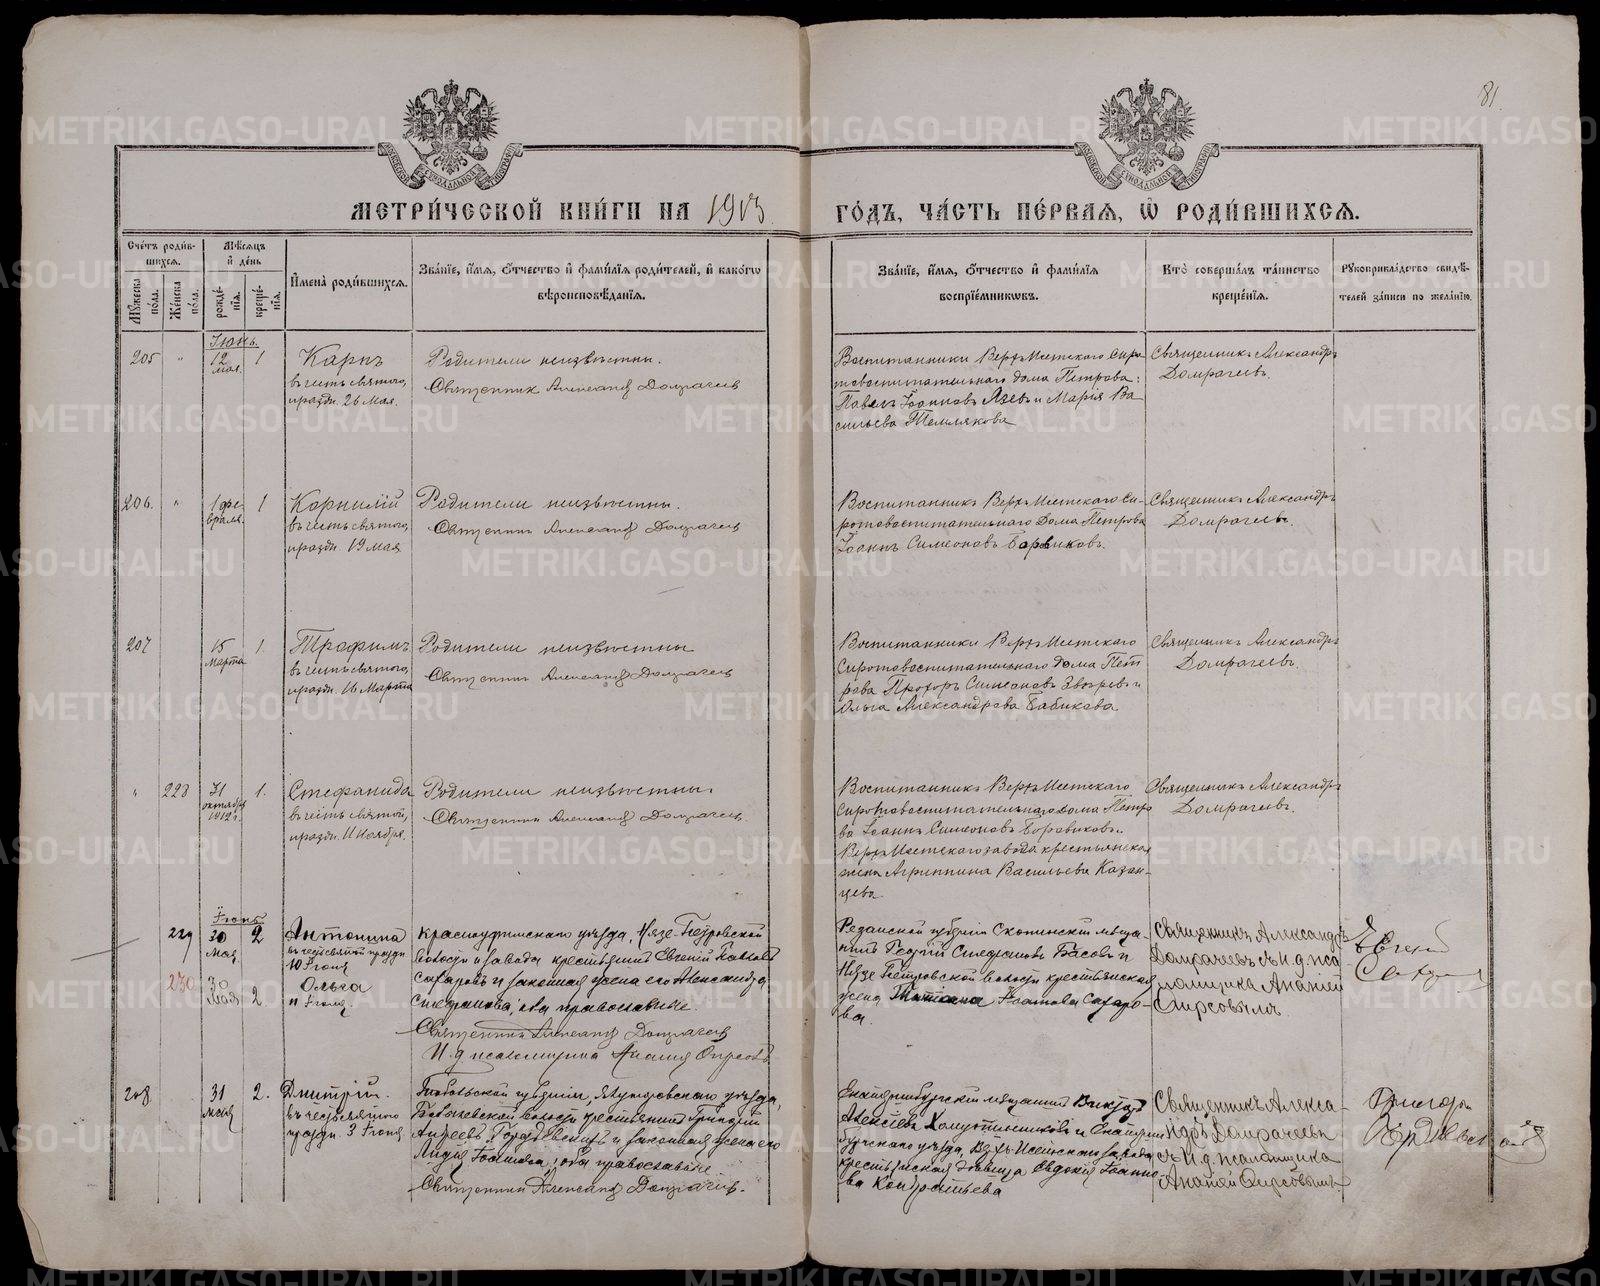 81.
МЕТРИ́ЧЕСКОЙ КНИ́ГИ НА 1913 ГО́ДЪ, ЧА́СТЬ ПЕ́РВАЯ, Ѡ РОДИ́ВШИХСЯ.
Сче́тъ роди́вшихся.
Му́жеска по́ла.
Же́нска по́ла.
Мѣ́сяцъ и́ де́нь
рожде́нія.
креще́нія.
И́мена̀ роди́вшихся.
Зва́ніе, и́мя, о́тчество и́ фами́лія роди́телей, и́ како́гѡ вѣроисповѣ́данія.
Зва́ніе, и́мя, о́тчество и́ фами́лія воспріе́мникѡвъ.
Кто̀ соверша́лъ та́инство креще́нія.
Рꙋкоприкла́дство свидѣ́телей за́писи по жела́нію.
Іюнь.
205 " 12 мая. 1
Карпъ
въ честь святого,
праздн. 26 Мая.
Родители неизвѣстны.
Священник Александр Домрачев
Воспитанники Верхъ-Исетскаго Сиро-
товоспитательнаго дома Петрова:
Павелъ Іоанновъ Язевъ и Марія Ва-
сильева Темлякова
Священникъ Александръ
Домрачевъ.
206. " 1 фе-
враля. 1
Корнилій
въ честь святого,
праздн. 19 мая
Родители неизвѣстны.
Священник Александр Домрачев
Воспитанникъ Верхъ-Исетскаго Си-
ротовоспитательнаго Дома Петрова
Іоаннъ Симеоновъ Боровиковъ.
Священникъ Александръ
Домрачевъ.
207 15
Марта 1.
Трофимъ
въ честь святого,
праздн. 16 Марта
Родители неизвѣстны
Священник Александр Домрачев
Воспитанники Верхъ-Исетскаго
Сиротовоспитательнаго дома Пет
рова Прохоръ Симеоновъ Звѣревъ и
Ольга Александрова Бабикова
Священникъ Александръ
Домрачевъ.
" 228 31
октября
1912 г. 1.
Стефанида
въ честь святой,
праздн. 11 Ноября.
Родители неизвѣстны.
Священник Александр Домрачев.
Воспитанникъ Верхъ-Исетскаго
Сиротовоспитательнаго дома Петро
ва Іоаннъ Симеоновъ Боровиковъ и
Верхъ-Исетскаго завода крестьянская
жена Агриппина Васильева Казан-
цева.
Священникъ Александръ
Домрачевъ.
Іюнь
229 30
мая 2
Антонина
въ честь святой праздн
10 Іюня
230 30
мая 2
Ольга
11 Іюня.
Красноуфимскаго уѣзда, Нязе-Петровской
волости и завода крестьянинъ Евгеній
Сахаровъ и законная жена его Александра
Стефанова, оба православные.
Священник Александр Домрачев
И. д псаломщика Ананія Фирсовъ
Рязанской губерніи Скопинскій мѣща-
нинъ Георгій Стефановъ Басовъ и
Нязе-Петровской волости крестьянская
жена Татіана Сахаро-
ва.
Священникъ Александръ
Домрачевъ съ и. д. пса
ломщика Ананій
Фирсовымъ.
Евгеній
208 31
мая 2.
Дмитрій.
въ честь святого
праздн. 3 Іюня
Тобольской губерніи, Ялуторовскаго уѣзда,
волости крестьянинъ Григорій
Андреевъ и законная жена его
Лидія оба православные.
Священник Александр Домрачев.
Екатеринбургскій мѣщанинъ Викторъ
Алексѣевъ Хомутинниковъ и Екатерин
бургскаго уѣзда, Верхъ-Исетскаго завода
крестьянская дѣвица Евдокія Іоанно-
ва Кондратьева
Священникъ Алекса-
ндръ Домрачевъ
съ И. д. псаломщика
Ананій Фирсовымъ
Григорій
METRIKI.GASO-URAL.RU